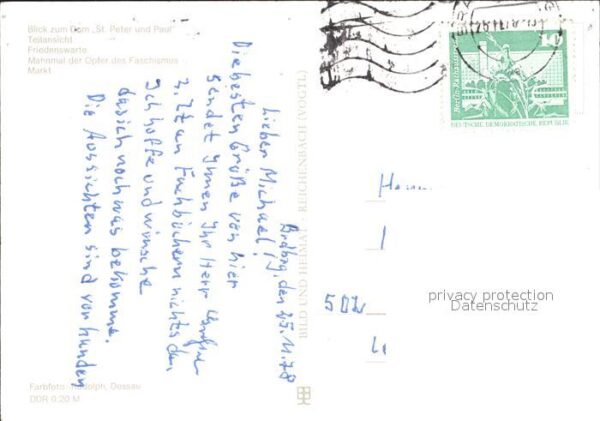 Blick zum Dom „St. Peter und Paul"
Teilansicht
Friedenswarte
Mahnmal der Opfer des Faschismus
Markt
Brdbg, den 25.11.78
Lieber Michael!
Die besten Grüße von hier
sendet Ihnen Ihr Herr
z. Zt an Fachbüchern nichts da.
Ich hoffe und wünsche
das ich noch was bekomme.
Die Aussichten sind vorhanden
BILD UND HEIMAT · REICHENBACH (VOGTL)
Farbfoto: Rudolph, Dessau
DDR 0,20 M
10
Berlin-Rathausstraße
DEUTSCHE DEMOKRATISCHE REPUBLIK
Herrn
502
privacy protection
Datenschutz